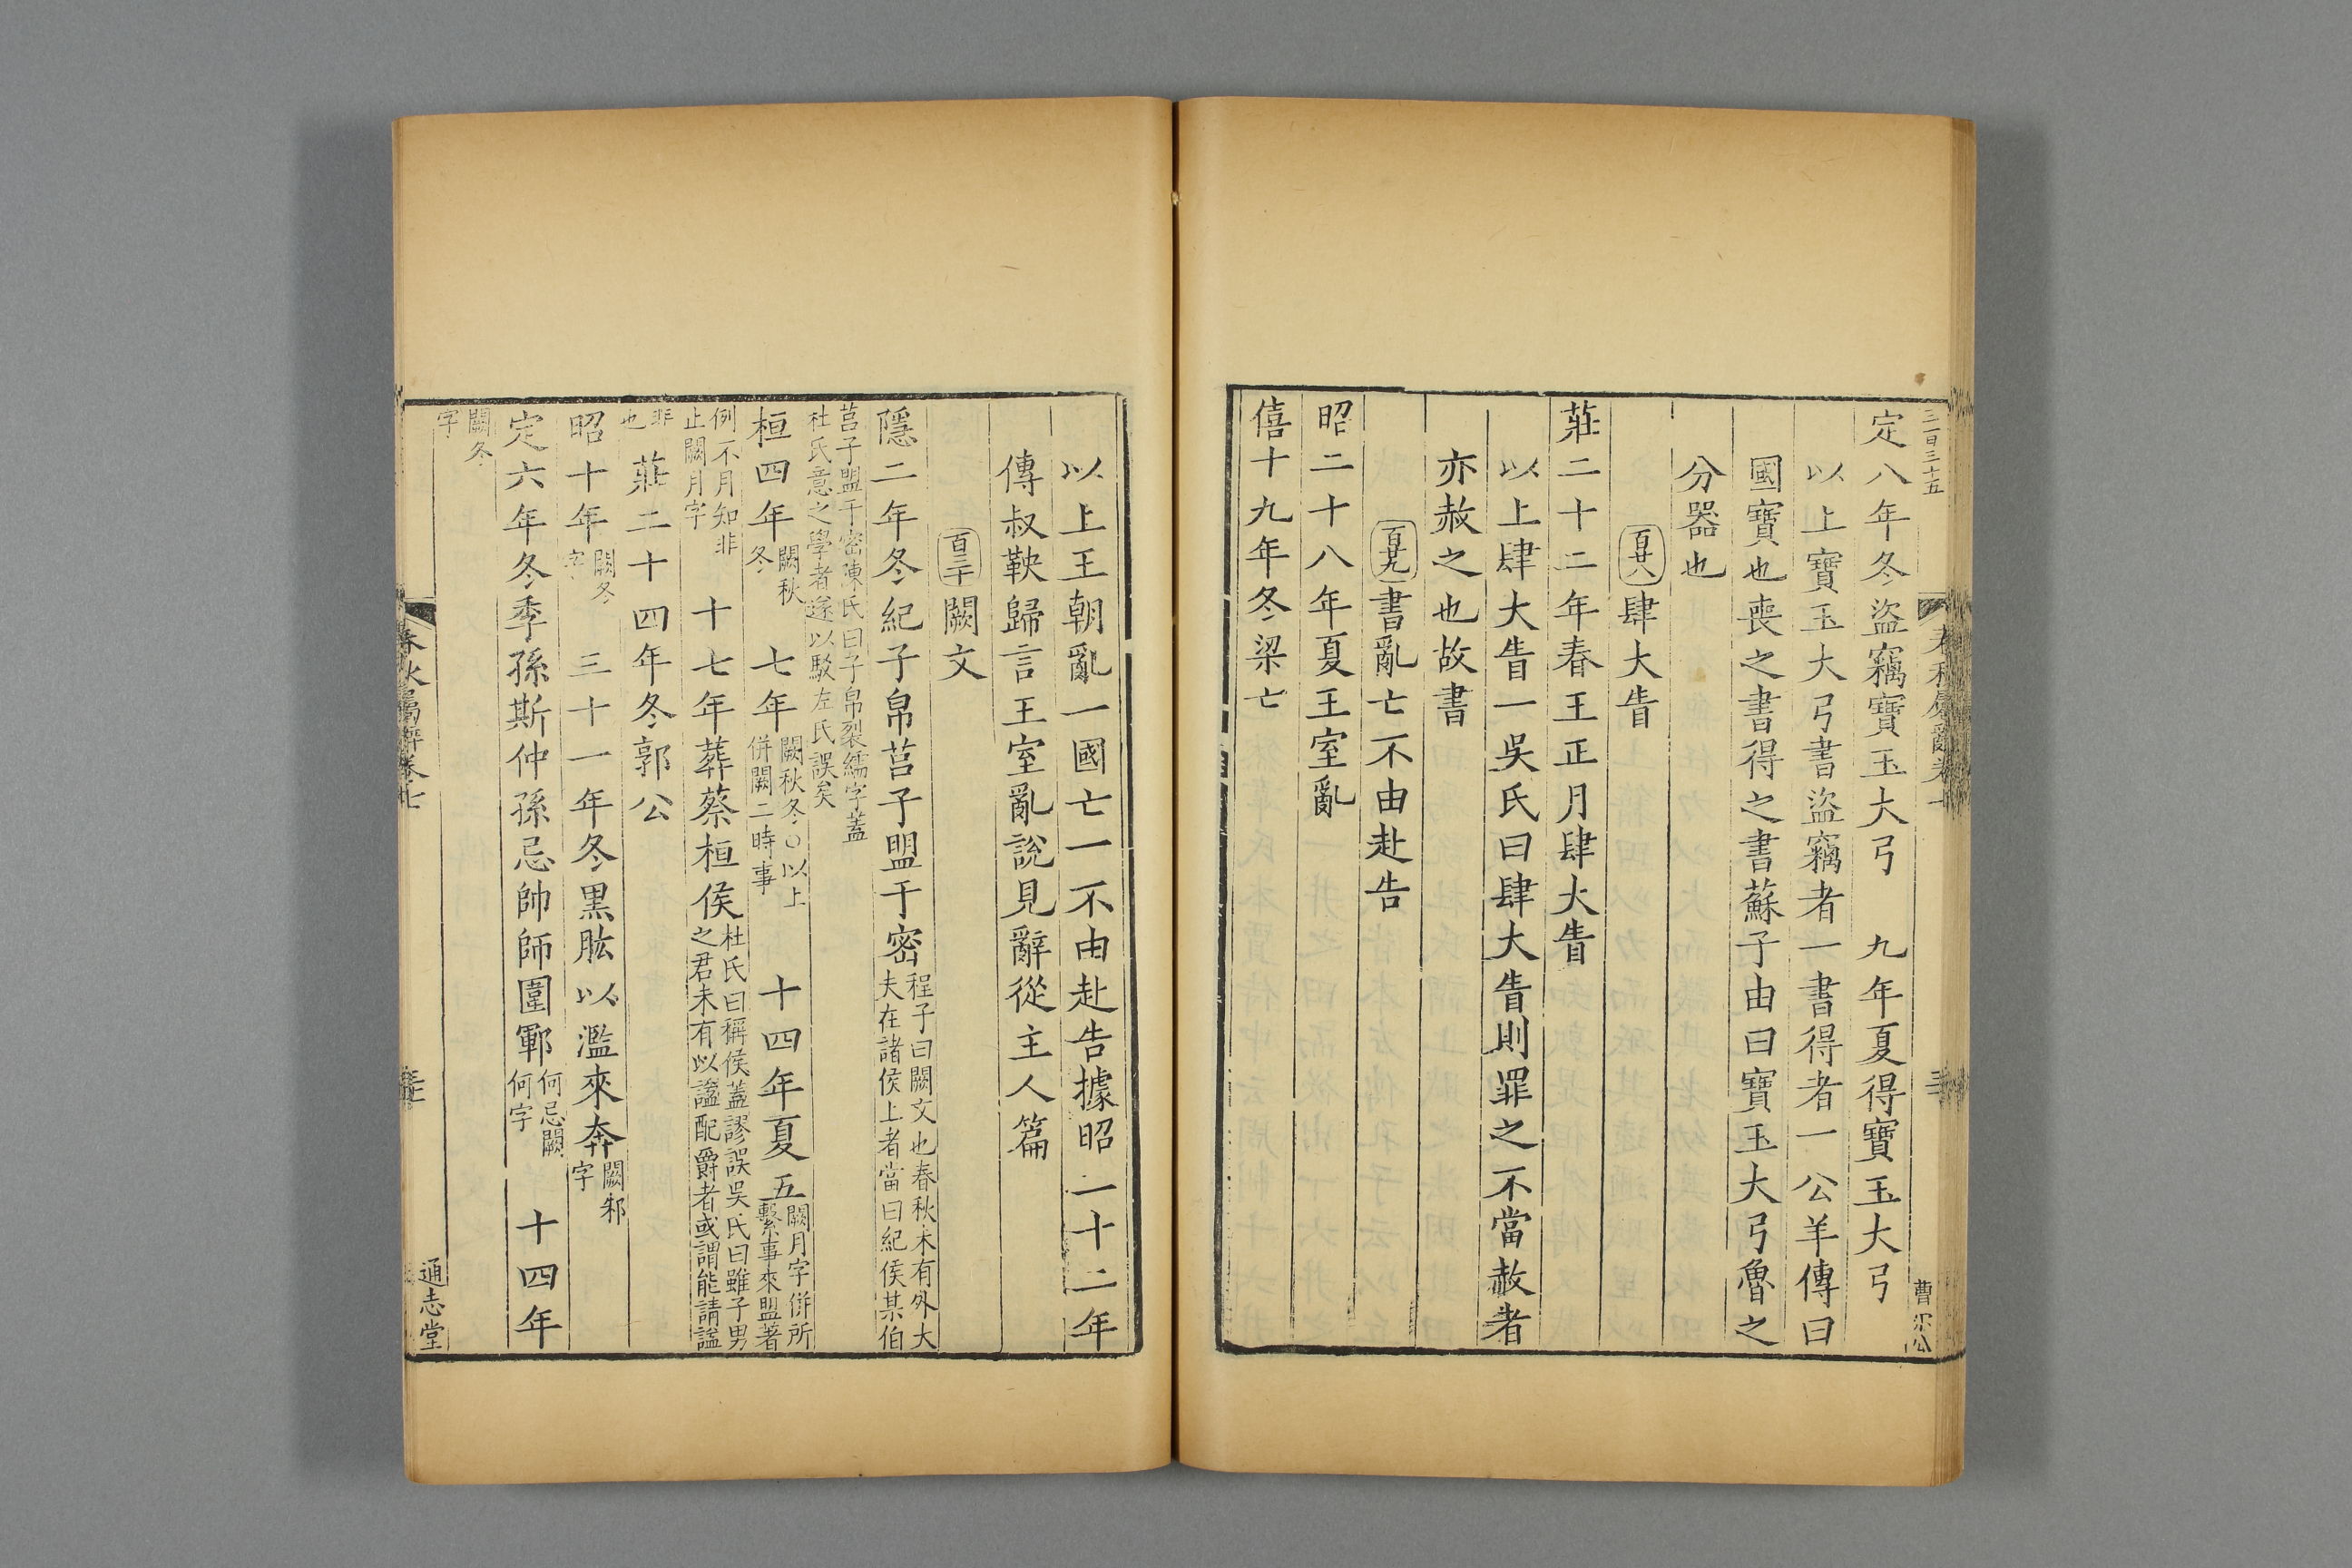 三百三十五
春秋屬辭卷七
曹尔公
定八年冬盜竊寶玉大弓　九年夏得寶玉大弓
以上寶玉大弓書盜竊者一書得者一公羊傳曰
國寶也喪之書得之書蘇子由曰寶玉大弓魯之
分器也
百廿八肆大眚
莊二十二年春王正月肆大眚
以上肆大眚一吳氏曰肆大眚則罪之不當赦者
亦赦之也故書
百廿九書亂亡不由赴告
昭二十八年夏王室亂
僖十九年冬梁亡
以上王朝亂一國亡一不由赴告據昭二十二年
傳叔鞅歸言王室亂說見辭從主人篇
百三十闕文
隱二年冬紀子帛莒子盟于密程子曰闕文也春秋未有外大夫在諸侯上者當曰紀侯某伯
莒子盟于密陳氏曰子帛裂繻字蓋杜氏意之學者遂以駁左氏誤矣
桓四年闕秋冬　七年闕秋冬○以上併闕二時事　十四年夏五闕月字併所繫事來盟著
例不月知非止闕月字　十七年葬蔡桓侯杜氏曰稱侯蓋謬誤吳氏曰雖子男之君未有以謚配爵者或謂能請謚
非也　莊二十四年冬郭公
昭十年闕冬字　三十一年冬黑肱以濫來奔闕邾字
定六年冬季孫斯仲孫忌帥師圍鄆何忌闕何字　十四年
闕冬字
春秋屬辭卷七
通志堂